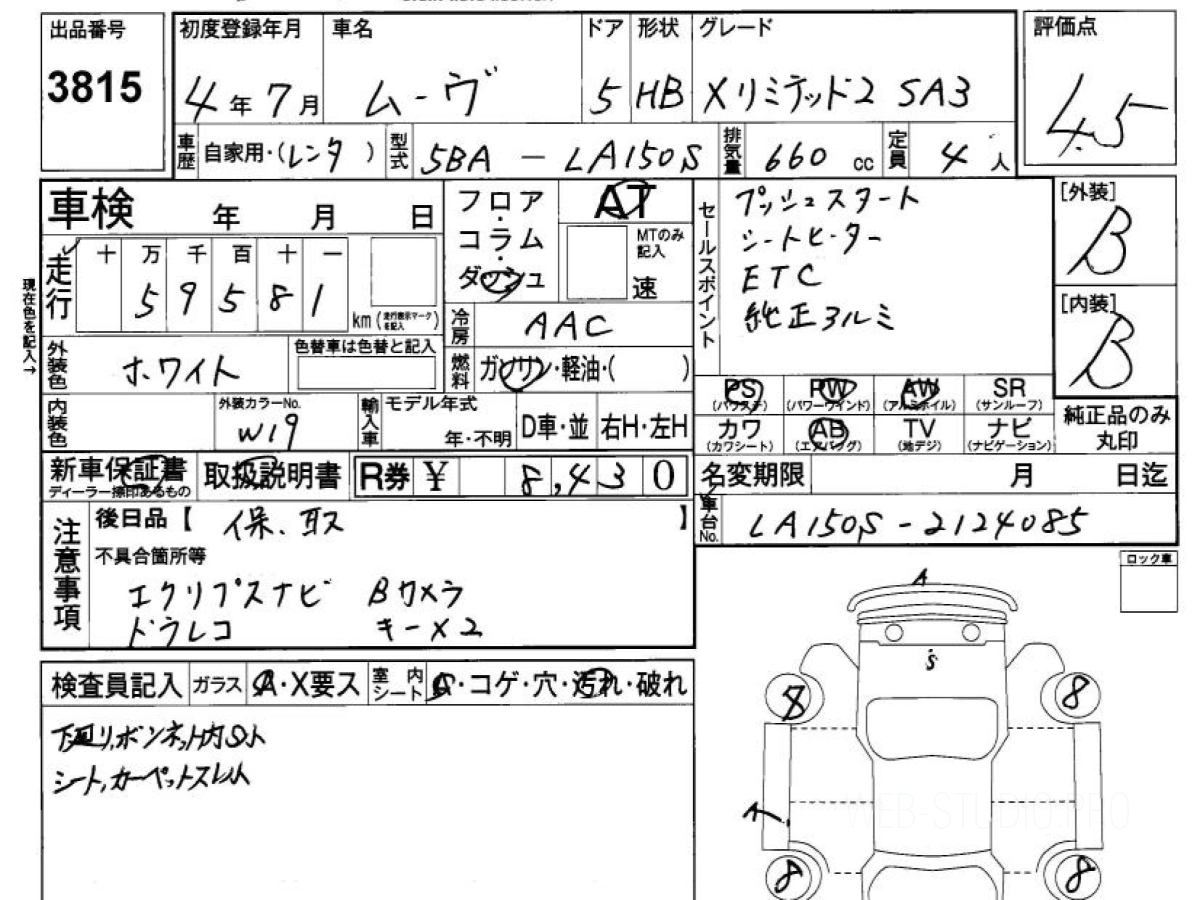 出品番号 初度登録年月 車名 ドア 形状 グレード 評価点
3815 4年7月 ムーヴ 5 HB XリミテッドⅡ SA3 4.5
車歴 自家用・(レンタ) 型式 5BA-LA150S 排気量 660cc 定員 4人
車検 年 月 日
フロア・コラム・ダッシュ
AT
MTのみ記入
速
セールスポイント
プッシュスタート
シートヒーター
ETC
純正アルミ
[外装]
B
[内装]
B
現在色を記入→
走行 十 万 千 百 十 一
5 9 5 8 1 km (走行表示マークを記入)
冷房 AAC
外装色 ホワイト 色替車は色替と記入
燃料 ガソリン・軽油・( )
内装色 外装カラーNo. W19 輸入車 モデル年式 年・不明 D車・並 右H・左H
PS (パワステ) PW (パワーウインド) AW (アルミホイル) SR (サンルーフ)
カワ (カワシート) AB (エアバッグ) TV (地デジ) ナビ (ナビゲーション)
純正品のみ丸印
新車保証書 ディーラー捺印あるもの 取扱説明書 R券 ¥ 8,430
名変期限 月 日迄
車台No. LA150S-2124085
注意事項
後日品【 保、取 】
不具合箇所等
エクリプスナビ Bカメラ
ドラレコ キー×2
ロック車
検査員記入 ガラス A・X要ス 室内シート S・コゲ・穴・汚れ・破れ
下廻り,ボンネット内サビ
シート,カーペットスレ
A
S
8 8
A
8 8
WEB-STUDIO.PRO